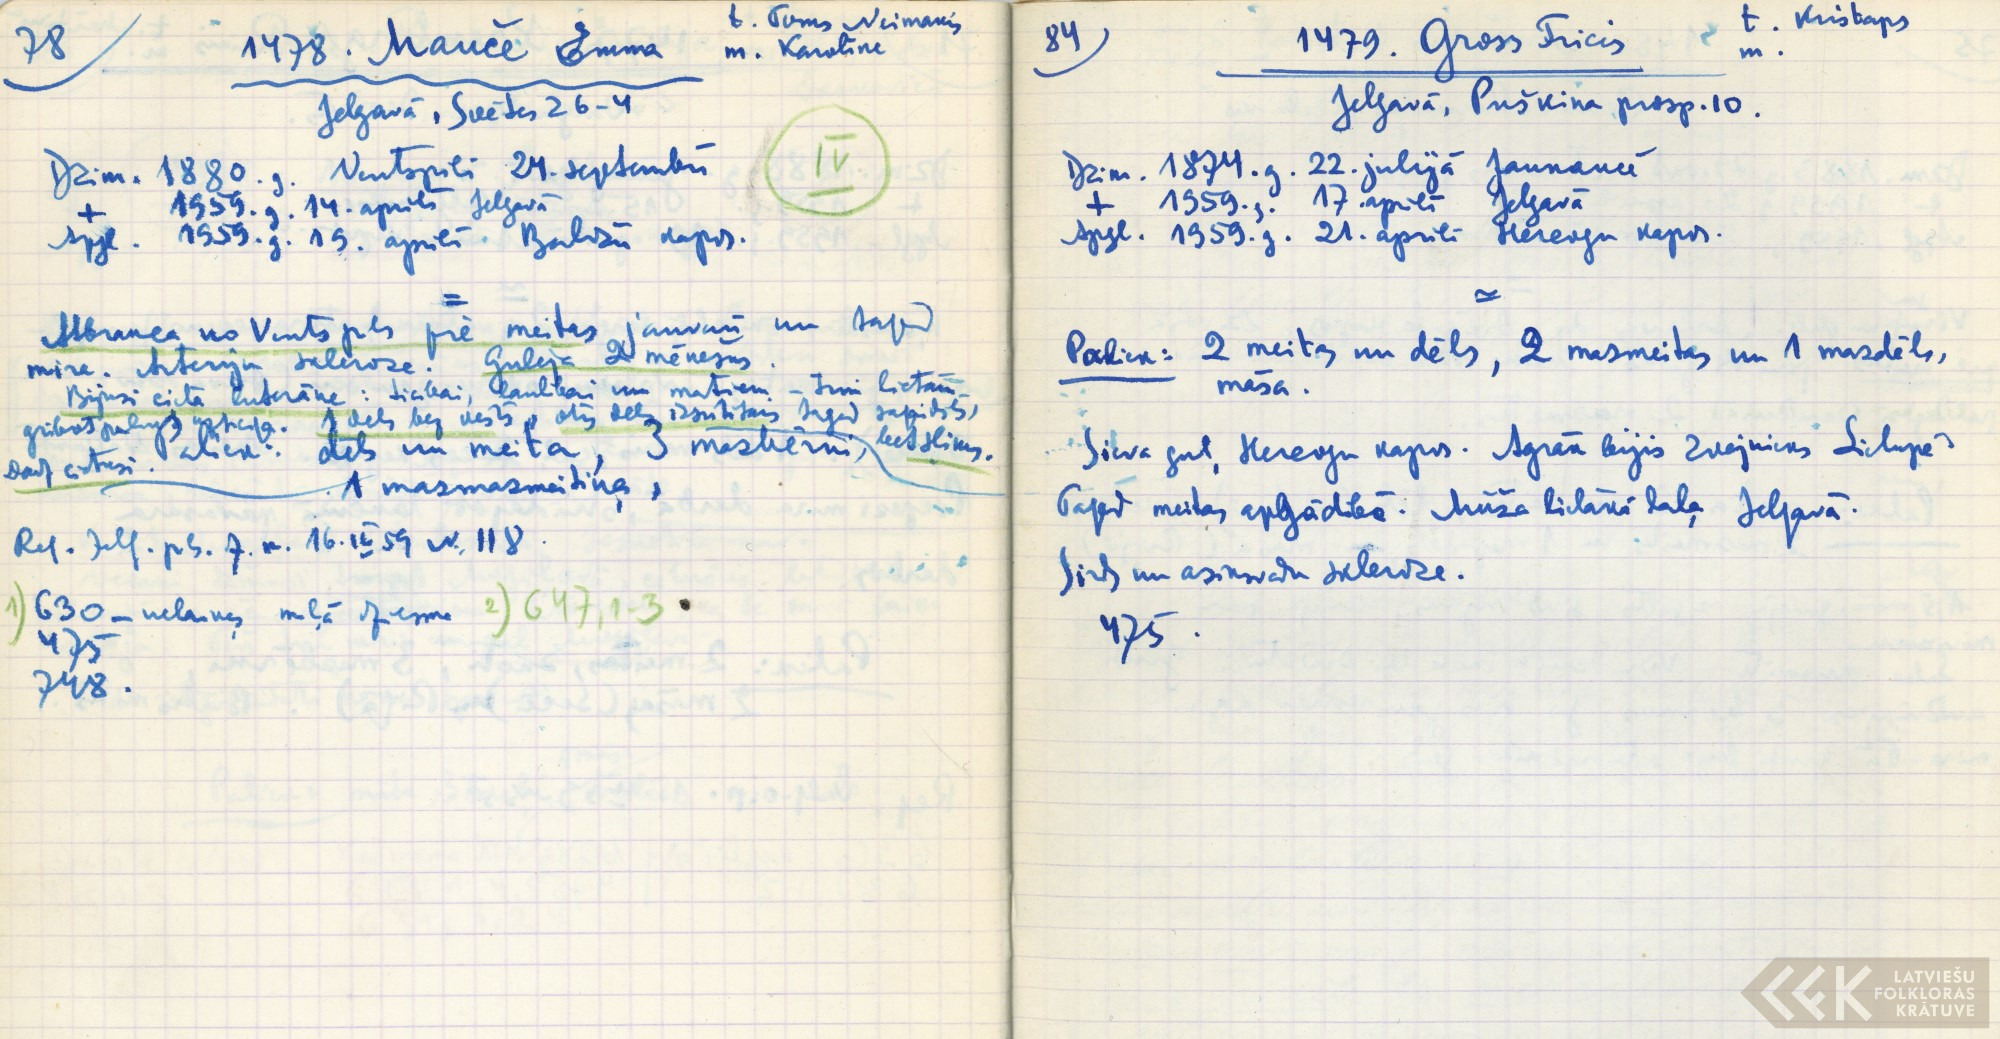 78
1478. Mauče Emma
t. Toms Neimanis
m. Karolīne
Jelgavā, Svētes 26-4
Dzim. 1880. g. Ventspilī 24. septembrī
IV
+ 1959. g. 14. aprīlī Jelgavā
Apgl. 1959. g. 19. aprīlī Bērzu kapos.
=
Atbrauca no Ventspils pie meitas jauna un tagad
mira. Arteriju skleroze. Gulēja 2 mēnesus.
Bijusi cieta luterāne: ticībai, laulībai un matiem - trim lietām
1 dēls bez vēsts, otrs dēls izsūtītais tagad
Paliek: dēls un meita, 3 mazbērni, bet slims.
daudz cietusi.
1 mazmazmeitiņa,
Reģ. Jelg. pls. 7. n. 16. IV 59 N. 118.
1) 630 - nelaiķes mīļā dziesma 2) 647, 1-3
475
748.
84
1479. Gross Fricis
t. Kristaps
m.
Jelgavā, Puškina prosp. 10.
Dzim. 1874. g. 22. julijā Jaunaucē
+ 1959. g. 17. aprīlī Jelgavā
Apgl. 1959. g. 21. aprīlī Hercogu kapos.
≃
Paliek: 2 meitas un dēls, 2 mazmeitas un 1 mazdēls,
māsa.
Sieva guļ Hercogu kapos. Agrāk bijis zvejnieks Lielupē
Tagad meitas apgādībā. Mūža lielākā daļa Jelgavā.
Sirds un asinsvadu skleroze.
475.
LATVIEŠU
FOLKLORAS
KRĀTUVE